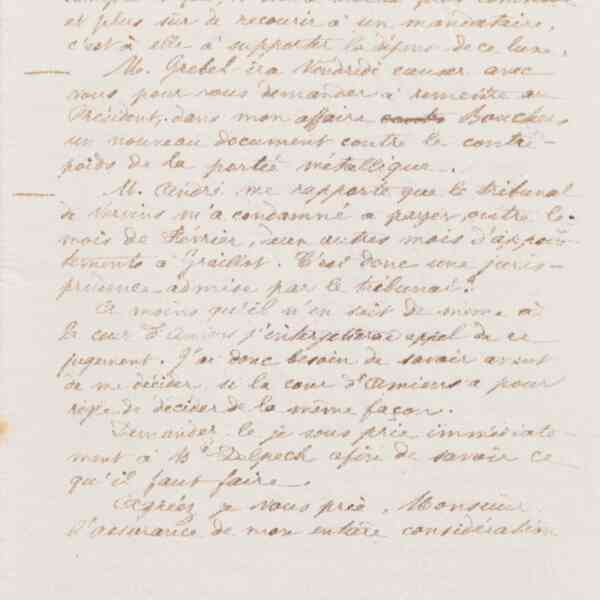 et plus sûr de recourir à un mandataire,
c'est à elle à supporter la dépense de ce luxe.
M. Grebel ira Vendredi causer avec
vous pour vous demander à remettre au
Président, dans mon affaire Boucher
un nouveau document contre le contre-
poids de la partie métallique.
M. André me rapporte que le tribunal
de Vervins m'a condamné à payer, outre le
mois de Février, deux autres mois d'appoin-
tements à Graillot. C'est donc une juris-
prudence admise par le tribunal.
A moins qu'il n'en soit de même à
la cour d'Amiens j'interjetterai appel de ce
jugement. J'ai donc besoin de savoir avant
de me décider, si la cour d'Amiens a pour
règle de décider de la même façon.
Demandez-le je vous prie immédiate-
ment à Mr Delpech afin de savoir ce
qu'il faut faire.
Agréez je vous prie, Monsieur
l'assurance de mon entière considération